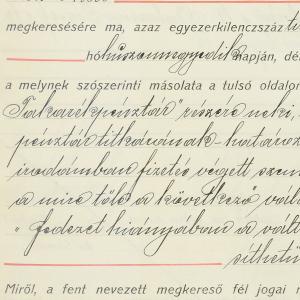 megkeresésére ma, azaz egyezerkilenczszáz
hó huszonnegyedik napján, dé
a melynek szószerinti másolata a tulsó oldalon
Takarékpénztár" részére neki,
pénztár titkárának - határoz
irodámban fizetés végett szem
a mire tőle a következő vála
„fedezet hiányában a vált
síthető
Miről, a fent nevezett megkereső fél jogai